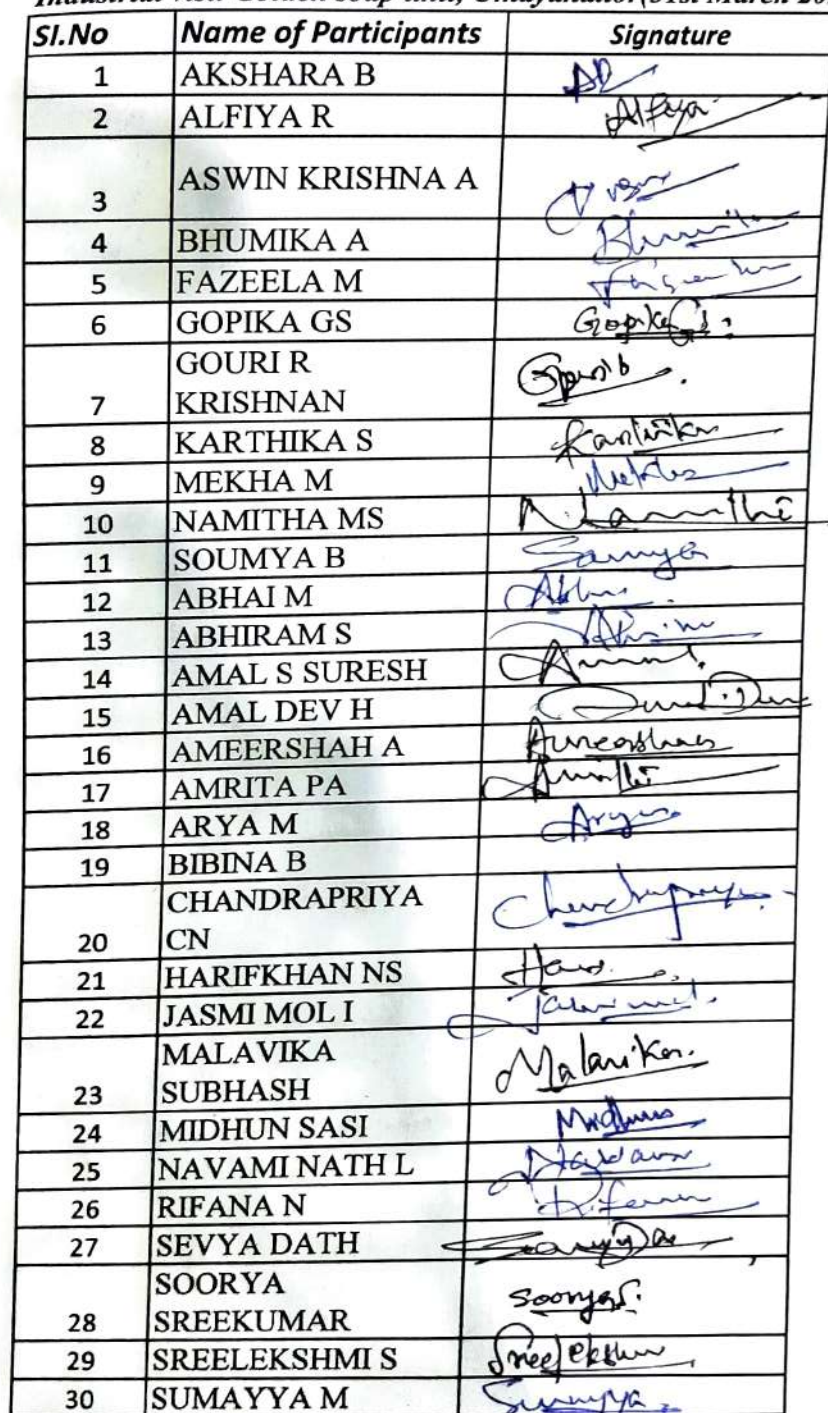 Sl.No Name of Participants Signature
1 AKSHARA B
2 ALFIYA R Alfiya
3 ASWIN KRISHNA A
4 BHUMIKA A Bhumika
5 FAZEELA M
6 GOPIKA GS Gopika GS
GOURI R
7 KRISHNAN
8 KARTHIKA S Karthika
9 MEKHA M Mekha
10 NAMITHA MS Namitha
11 SOUMYA B Soumya
12 ABHAI M
13 ABHIRAM S
14 AMAL S SURESH Amal
15 AMAL DEV H
16 AMEERSHAH A Ameershah
17 AMRITA PA
18 ARYA M Arya
19 BIBINA B
CHANDRAPRIYA Chandrapriya
20 CN
21 HARIFKHAN NS
22 JASMI MOL I
MALAVIKA Malavika
23 SUBHASH
24 MIDHUN SASI Midhun
25 NAVAMI NATH L
26 RIFANA N
27 SEVYA DATH
SOORYA
28 SREEKUMAR
29 SREELEKSHMI S Sreelekshmi
30 SUMAYYA M Sumayya